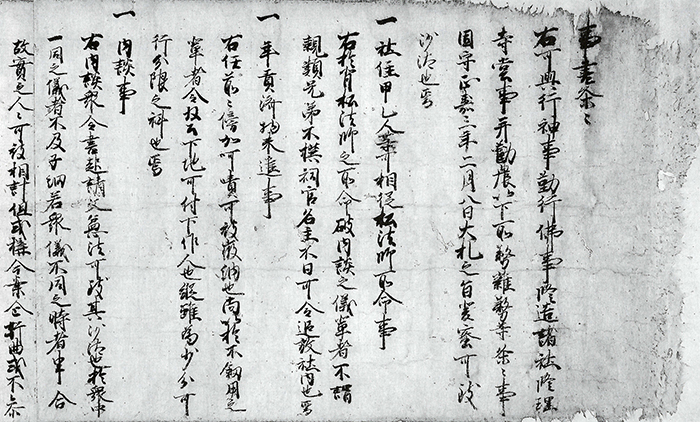 事書条々
右可興行神事勤行佛事修造諸社修理
寺堂事并勧農以下所務雑務等条々事
固守正嘉二年二月八日大札之旨可致
沙汰也焉
一社住甲乙人等可相従松法師所命事
右於背松法師之所命破内談之儀輩者不謂
親類兄弟不撰祠官名主不日可令追放社内也焉
一年貢済物未進事
右任前々傍加可嘖可被徴納也尚於不叙用之
輩者令収公下地可付下作人也縦雖為少分可
行分限之科也焉
一内談事
右内談衆令書起請文無法可致其沙汰也於衆中
一同之儀者不及子細若衆儀不同之時者串合
故実之人々可被相計但或構今案企奸曲或不